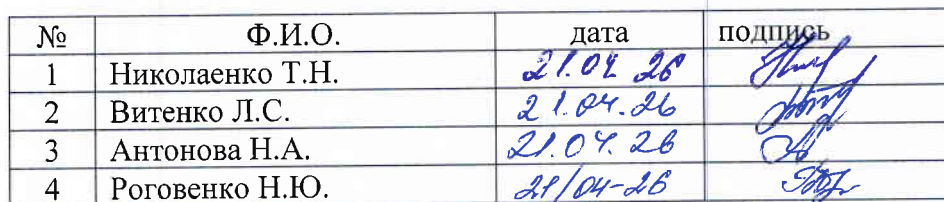 № Ф.И.О. дата подпись
1 Николаенко Т.Н. 21.04 26
2 Витенко Л.С. 21.04.26
3 Антонова Н.А. 21.04.26
4 Роговенко Н.Ю. 21/04-26